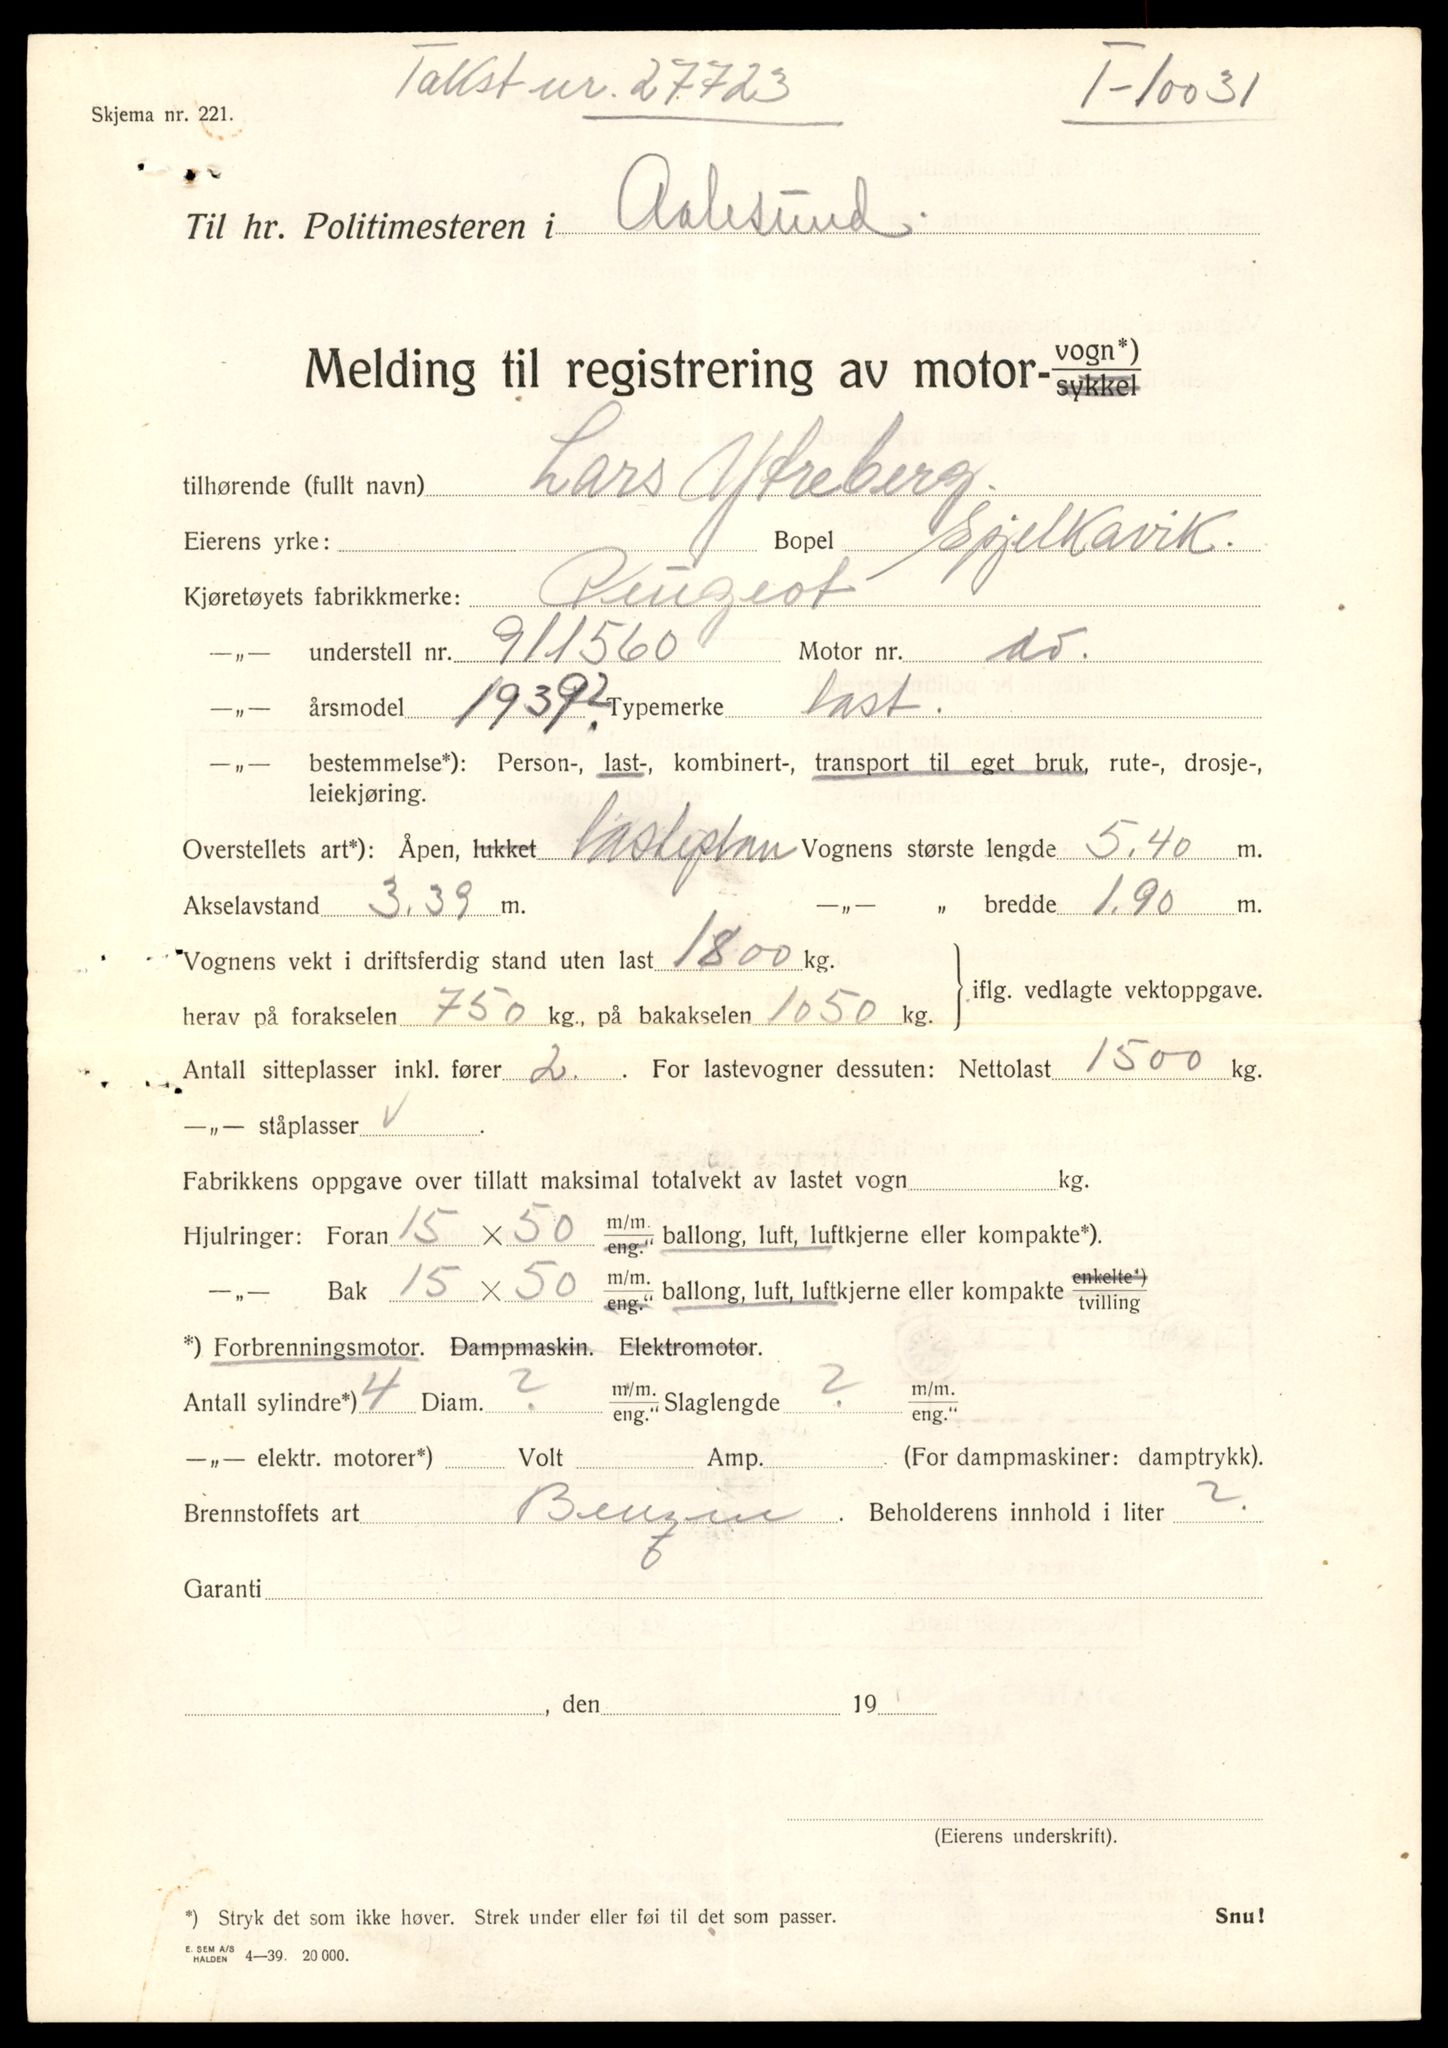 Takst nr. 27723
T-10031
Skjema nr. 221.
Til hr. Politimesteren i Aalesund.
Melding til registrering av motor- vogn*) sykkel
tilhørende (fullt navn) Lars Ytreberg.
Eierens yrke: Bopel Spjelkavik.
Kjøretøyets fabrikkmerke: Peugeot
—„— understell nr. 911560 Motor nr. do.
—„— årsmodel 1939? Typemerke last.
—„— bestemmelse*): Person-, last-, kombinert-, transport til eget bruk, rute-, drosje-,
leiekjøring.
Overstellets art*): Åpen, lukket lasteplan Vognens største lengde 5.40 m.
Akselavstand 3.39 m. —„— „ bredde 1.90 m.
Vognens vekt i driftsferdig stand uten last 1800 kg.
herav på forakselen 750 kg., på bakakselen 1050 kg.
iflg. vedlagte vektoppgave.
Antall sitteplasser inkl. fører 2. . For lastevogner dessuten: Nettolast 1500 kg.
—„— ståplasser .
Fabrikkens oppgave over tillatt maksimal totalvekt av lastet vogn kg.
Hjulringer: Foran 15 × 50 m/m. eng." ballong, luft, luftkjerne eller kompakte*).
—„— Bak 15 × 50 m/m. eng." ballong, luft, luftkjerne eller kompakte enkelte*) tvilling
*) Forbrenningsmotor. Dampmaskin. Elektromotor.
Antall sylindre*) 4 Diam. ? m/m. eng." Slaglengde ? m/m. eng."
—„— elektr. motorer*) Volt Amp. . (For dampmaskiner: damptrykk).
Brennstoffets art Benzin . Beholderens innhold i liter ?
Garanti
, den 19
(Eierens underskrift).
*) Stryk det som ikke høver. Strek under eller føi til det som passer. Snu!
E. SEM A/S HALDEN 4—39. 20 000.